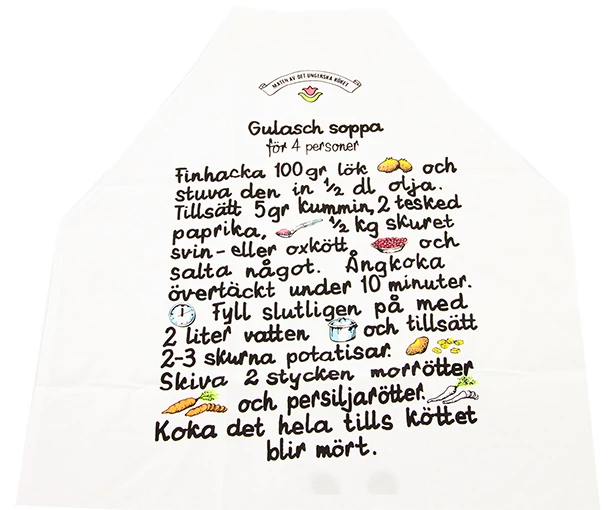 MATEN AV DET UNGERSKA KÖKET
Gulasch soppa
för 4 personer
Finhacka 100 gr lök och
stuva den in ½ dl olja.
Tillsätt 5gr kummin, 2 tesked
paprika, ½ kg skuret
svin- eller oxkött och
salta något. Ångkoka
övertäckt under 10 minuter.
Fyll slutligen på med
2 liter vatten och tillsätt
2-3 skurna potatisar.
Skiva 2 stycken morrötter
och persiljarötter.
Koka det hela tills köttet
blir mört.